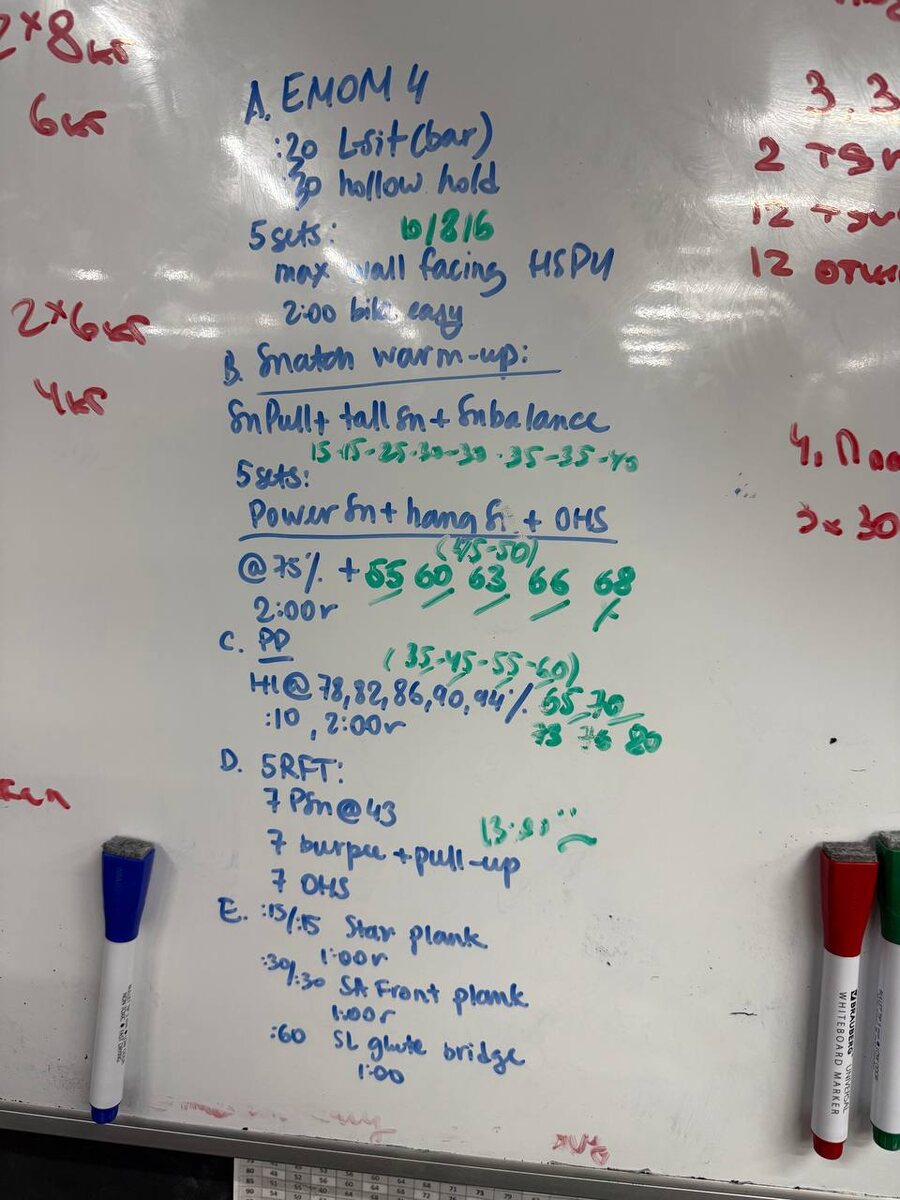 2×8кг
6кг
2×6кг
4кг
A. EMOM 4
:20 L-sit (bar)
:30 hollow hold
5 sets: 10/8/6
max wall facing HSPU
2:00 bike easy
B. Snatch warm-up:
Sn Pull + tall Sn + Sn balance
15-15-25-30-30-35-35-40
5 sets:
Power Sn + hang Sn + OHS
(45-50)
@75% + 55 60 63 66 68
2:00r
C. PP
(35-45-55-60)
@78,82,86,90,94% 65 70
:10, 2:00r 73 76 80
D. 5RFT:
7 PSn@43
7 burpee + pull-up
7 OHS
E. :15/:15 Star plank
1:00r
:30/:30 SA Front plank
1:00r
:60 SL glute bridge
1:00
3. 3
2 тяг
12
12 отжи
4.
3×30
BRAUBERG UNIVERSAL
WHITEBOARD MARKER